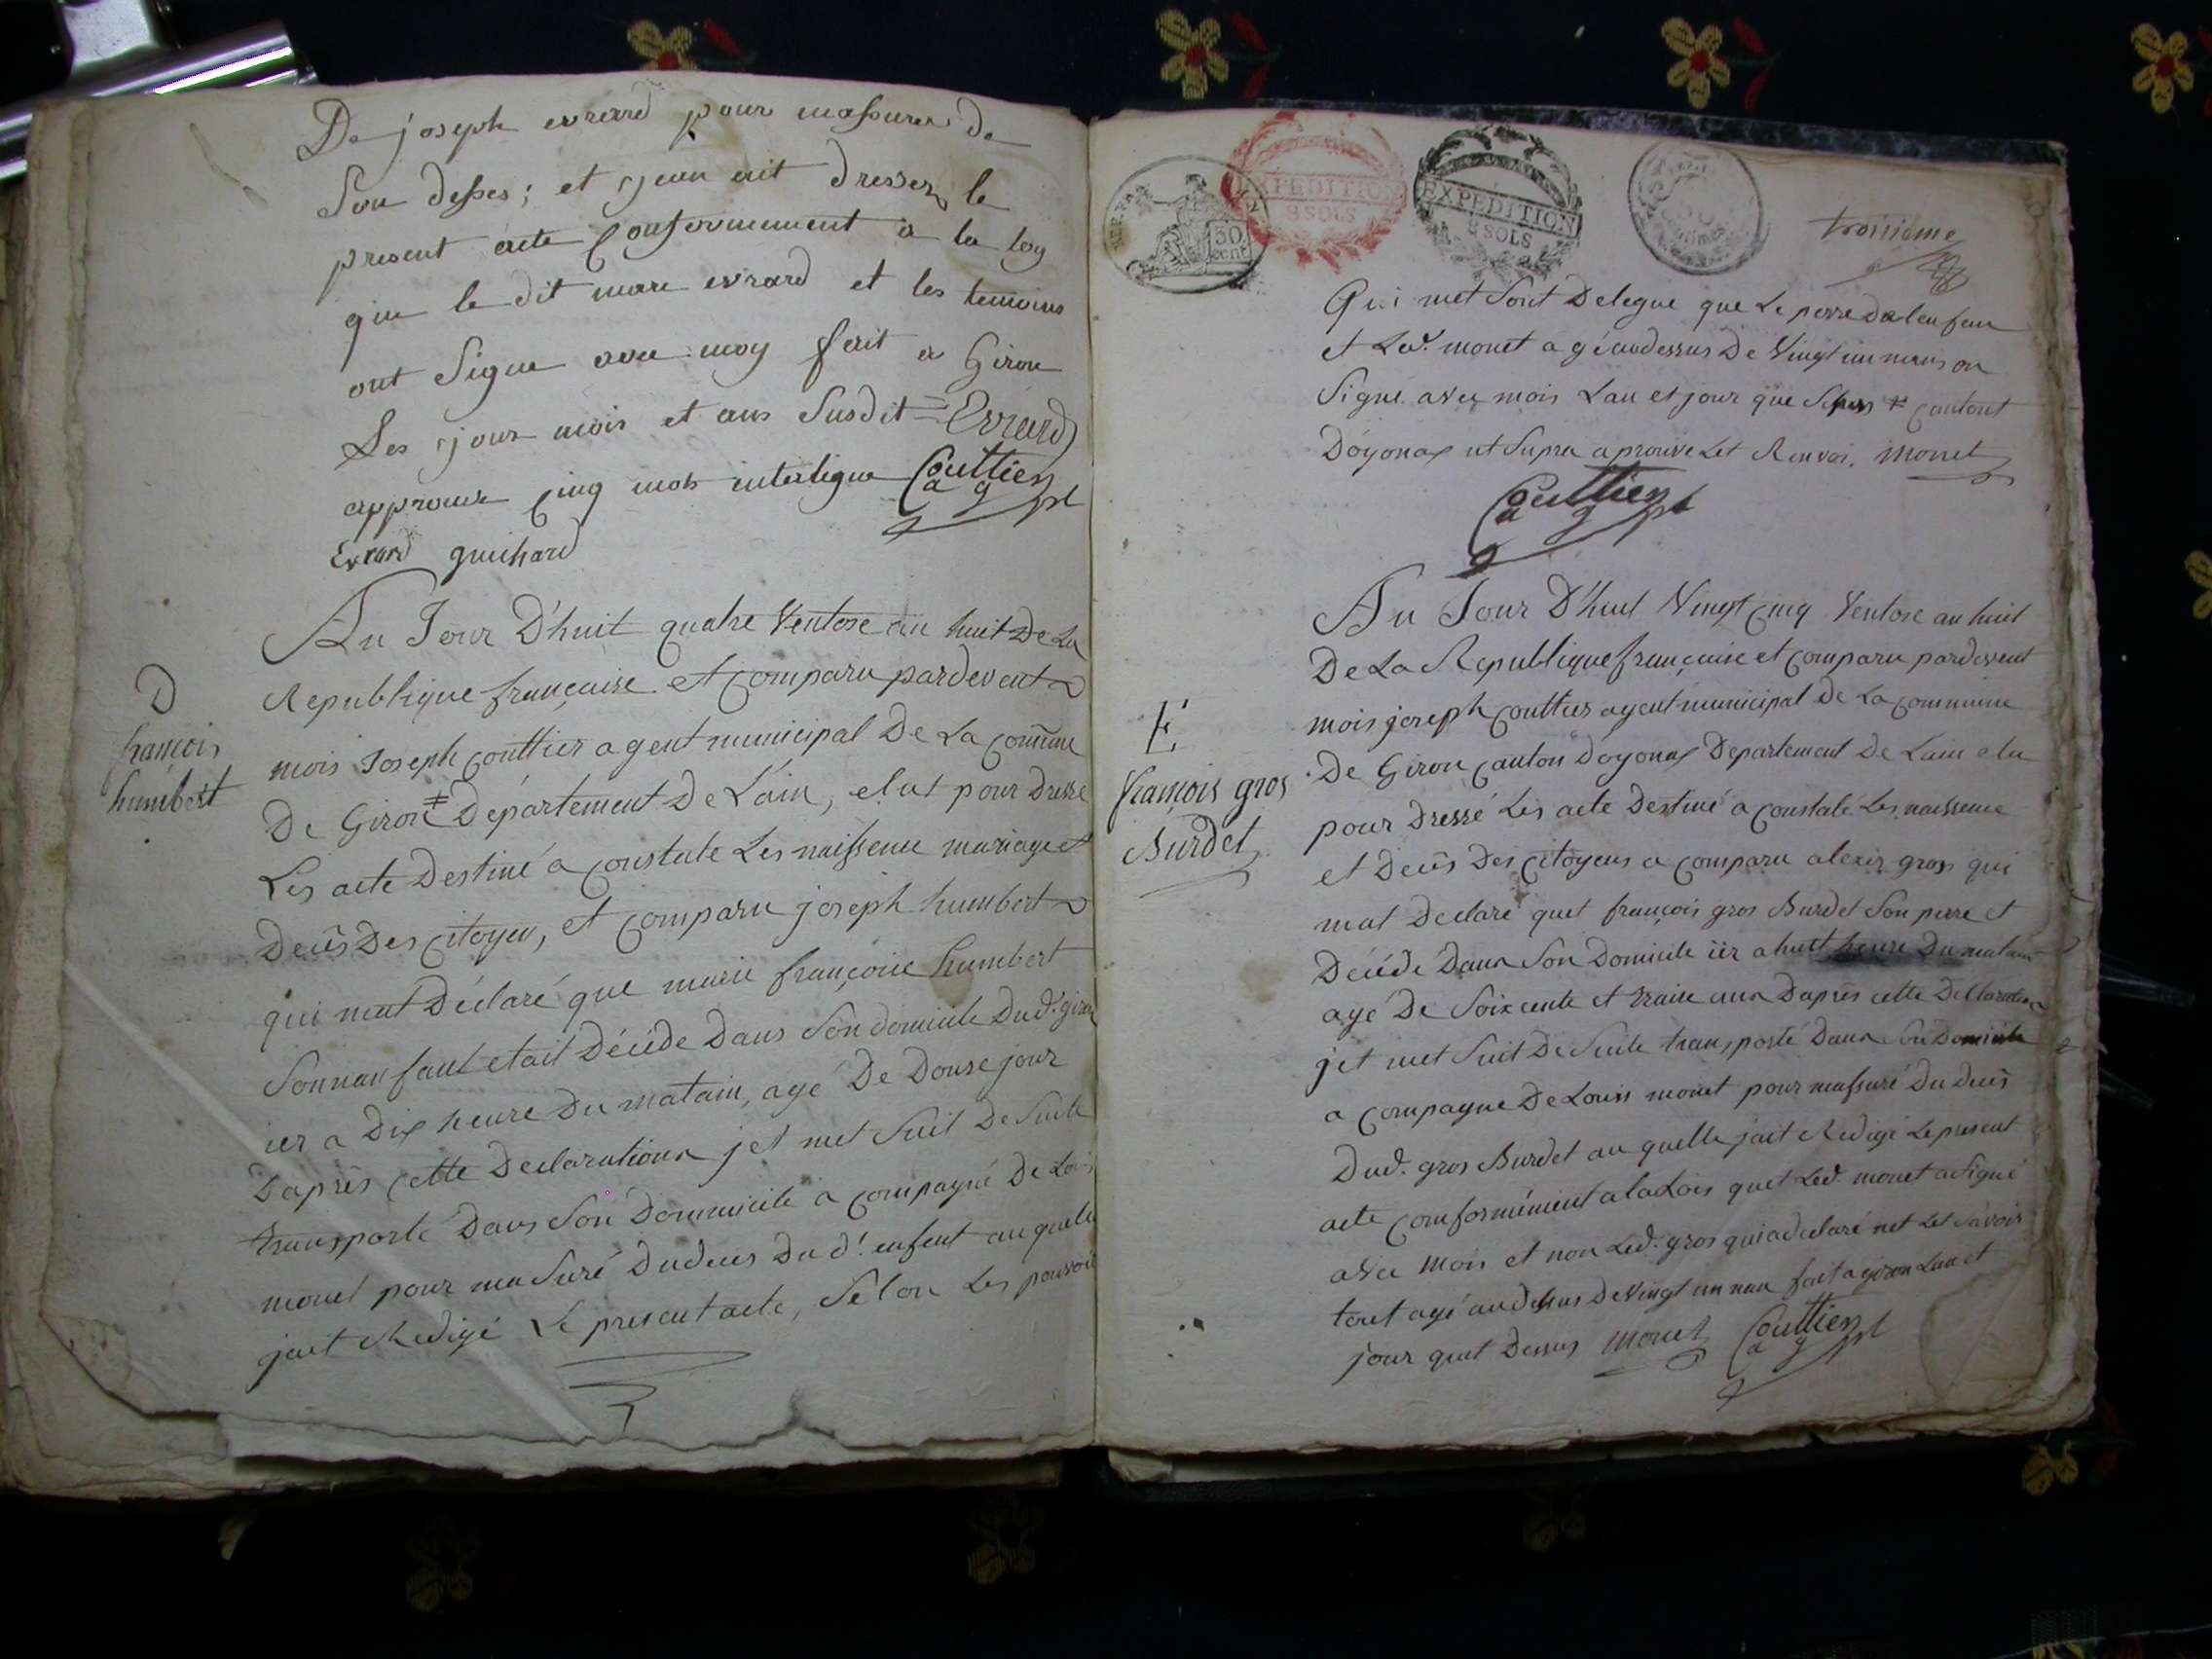 De joseph evrard pour massurer de
Son desses; et jean ait dresser le
present acte Conformement a la loy
que le dit marc evrard et les temoins
ont Signe avec moy fait a Giron
Les jour mois et ans Susdit = Evrard
approuve cinq mots interligne Couttier
a g pl
Evrard guichard
Au Jour D'huit quatre Ventose an huit De La
Republique française et Comparu pardevent
mois Joseph Couttier agent municipal De La Comune
De Giron ‡ Département De L'ain, elut pour Dressé
Les acte Destiné a Constate Les naissence mariage et
Decés Des Citoyen, et Comparu joseph humbert
qui mat Déclaré que marie françoise humbert
Sonnanfant etait Décéde Dans Son domicile Dud. giron
ier a Dix heure Du matain, agé De Douse jour
Daprès Cette Declarationn jet met Suit De Suite
transporté Dans Son Dommicile a Compagné De Louis
monet pour masuré Dudeces Du d. enfent au quelle
jait Redigé Le present acte, Selon Les pouvoir
D
françois
humbert
REP. FRA.
50 cent
EXPEDITION
8 SOLS
EXPEDITION
8 SOLS
50
centimes
troisième
Qui met Sont Delegue que Le perre De lenfan
et Led. monet agé audessus De Vingt un nans on
Signé avec mois Lan et jour que ‡ Cantont
Doyonax ut Supra aprouve Let Renvoi. monet
Couttier
a g pl
Au Jour D'huit Vingt Cinq Ventose an huit
De La Republique française et Comparu pardevent
mois joseph Couttier agent municipal De La Commune
De Giron Canton Doyonax Departement De Lain elu
pour Dressé Les acte Destiné a Constaté Les naissence
et Decés Des Citoyens a Comparu alexis gros qui
mat Declaré quet françois gros Burdet Son perre et
Décédé Dans Son Domicile ier a huit heure Du matain
agé De Soixcente et traise ans Daprès cette Declaration
jet met Suit De Suite transporté Dans Son Domicile
a Compagne De Louis monet pour massuré Du Deces
Dud. gros Burdet au quelle jait Redigé Le present
acte Conformément a la Lois quet Led. monet a Signé
avec mois et non Led. gros qui a declaré net Let Savoir
tout agé audessus De Vingt un nan fait a giron Lan et
jour quet Dessus monet Couttier
a g pl
E
françois gros
Burdet